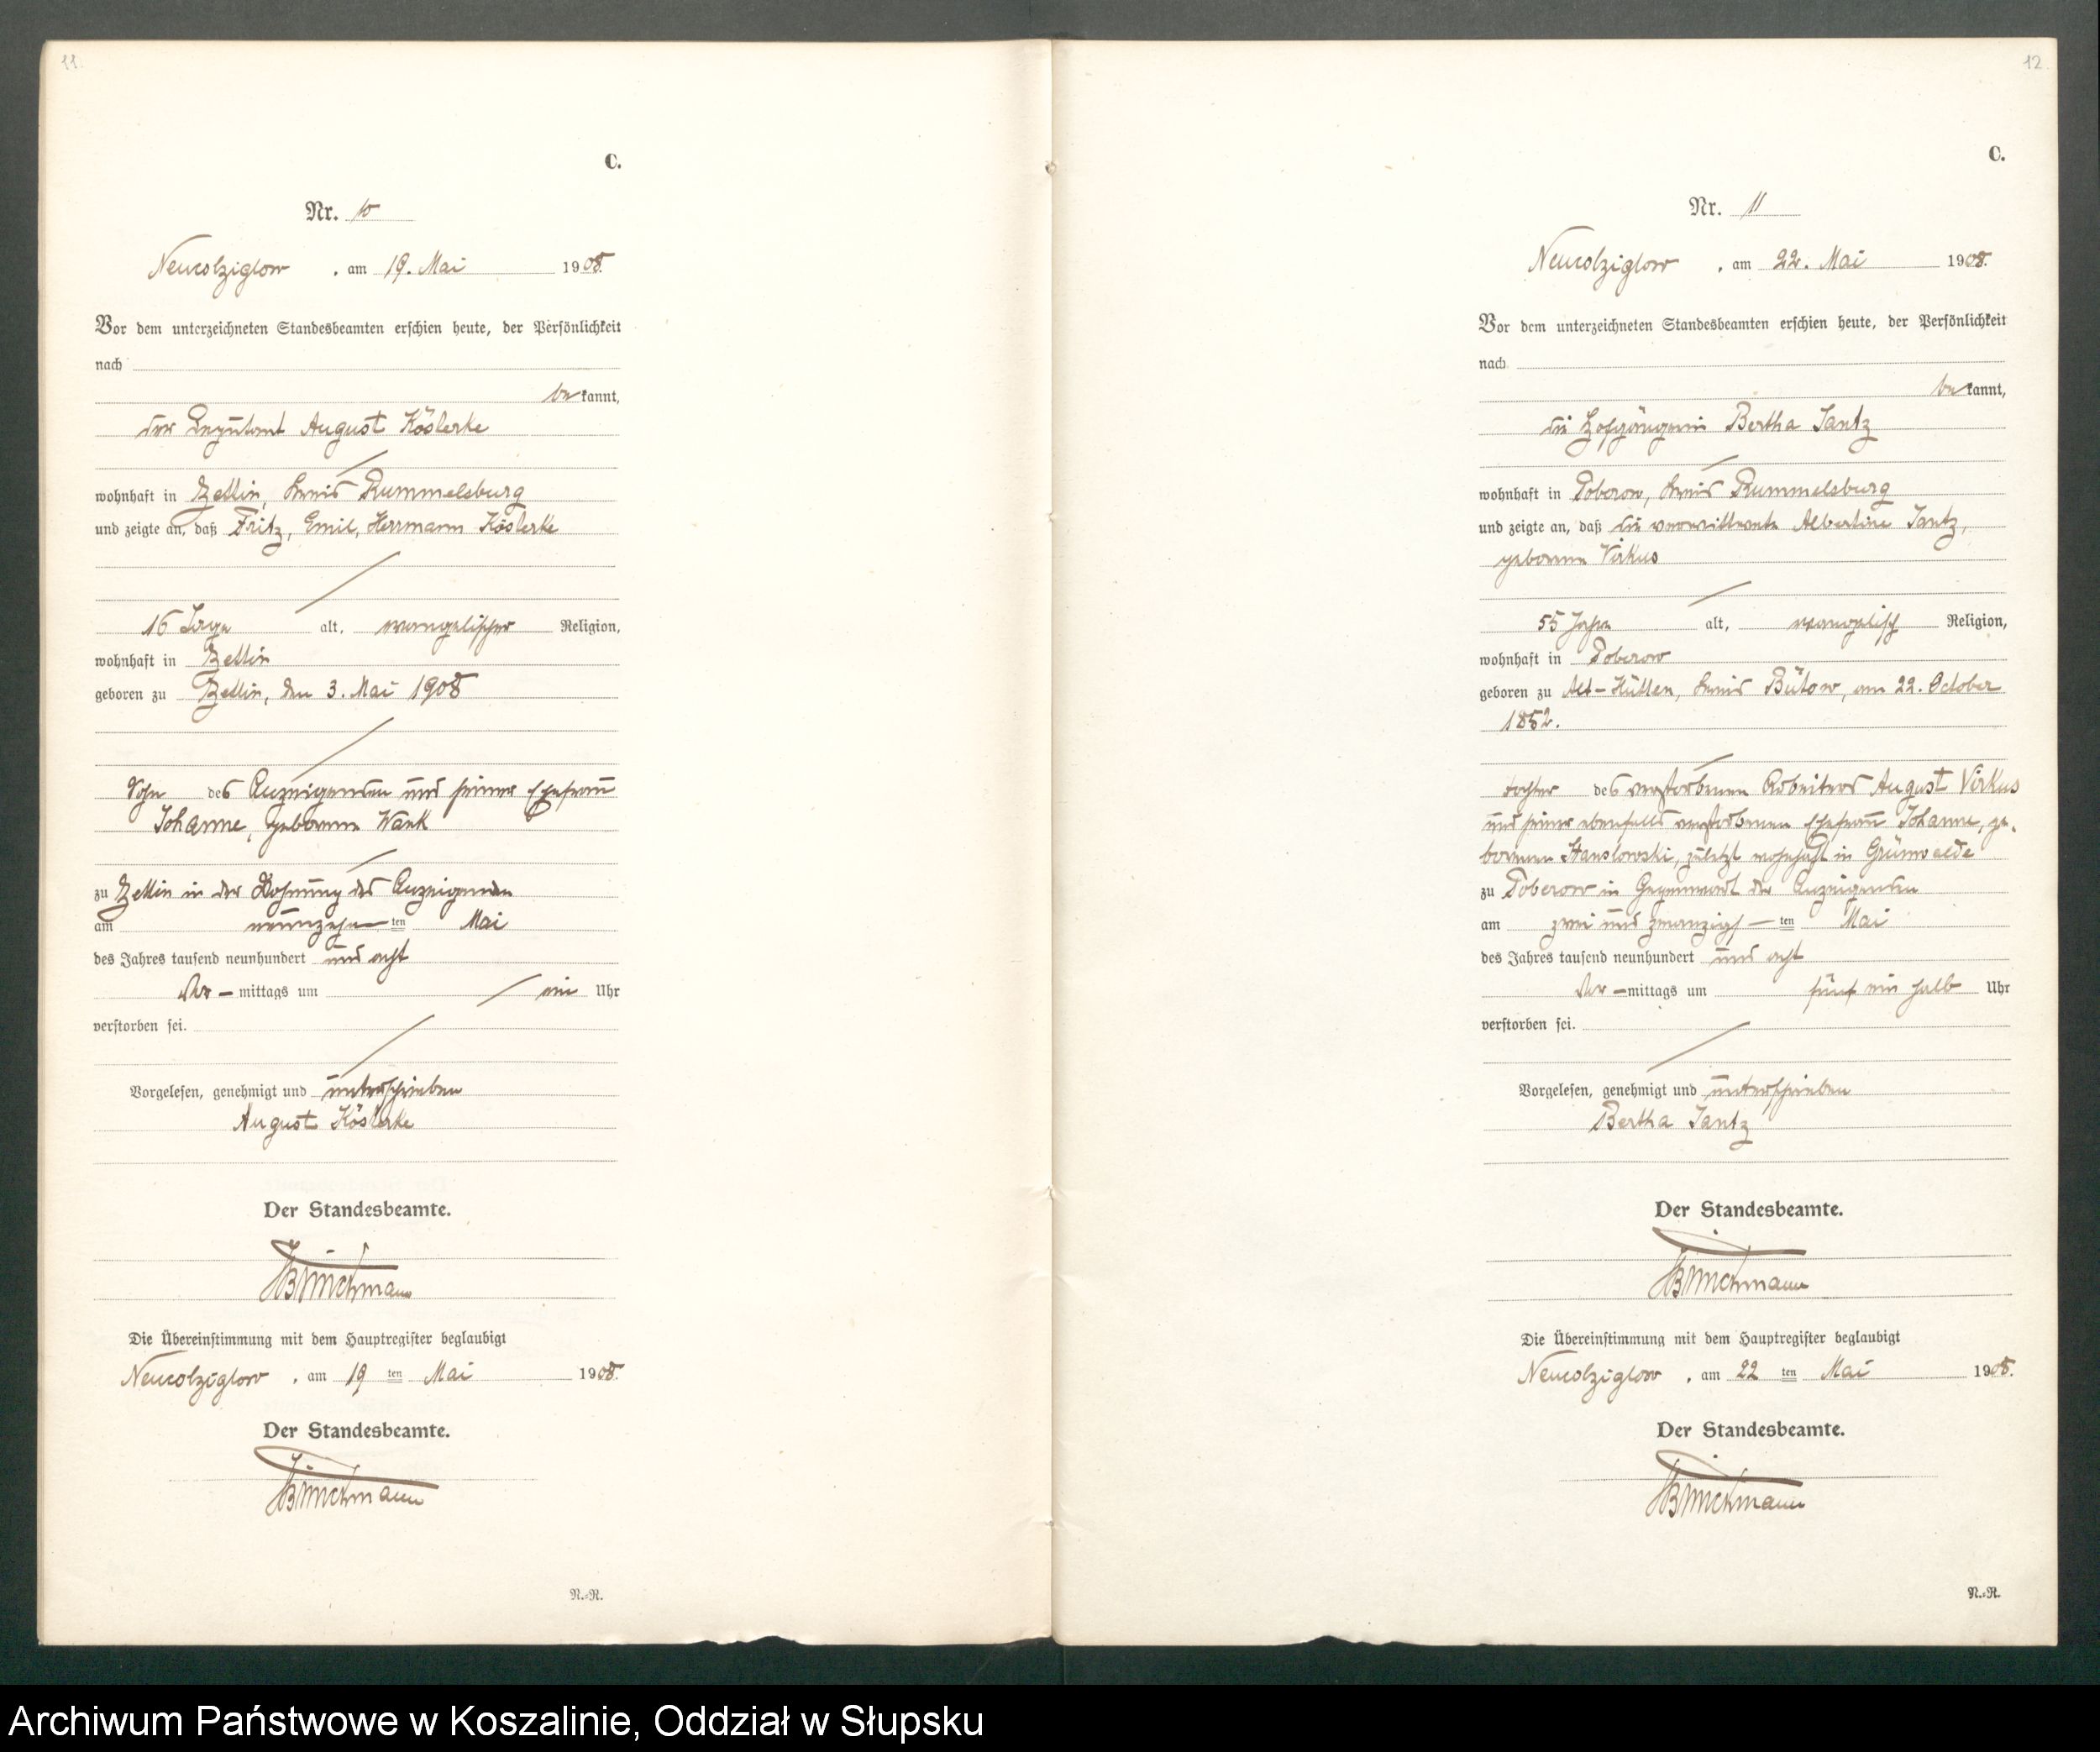 11.
C.
Nr. 10
Neukolziglow, am 19. Mai 1908.
Vor dem unterzeichneten Standesbeamten erschien heute, der Persönlichkeit
nach
bekannt,
der Deputant August Köslerke
wohnhaft in Zettin, Kreis Rummelsburg
und zeigte an, daß Fritz, Emil, Herrmann Köslerke
16 Tage alt, evangelischer Religion,
wohnhaft in Zettin
geboren zu Zettin, den 3. Mai 1908
Sohn des Anzeigenden und seiner Ehefrau
Johanne, geborenen Wank
zu Zettin in der Wohnung des Anzeigenden
am neunzehnten Mai
des Jahres tausend neunhundert und acht
Vor-mittags um ein Uhr
verstorben sei.
Vorgelesen, genehmigt und unterschrieben
August Köslerke
Der Standesbeamte.
Brinckmann
Die Übereinstimmung mit dem Hauptregister beglaubigt
Neukolziglow, am 19 ten Mai 1908.
Der Standesbeamte.
Brinckmann
N.-R.
12.
C.
Nr. 11
Neukolziglow, am 22. Mai 1908.
Vor dem unterzeichneten Standesbeamten erschien heute, der Persönlichkeit
nach
bekannt,
die Hofgängerin Bertha Jantz
wohnhaft in Poberow, Kreis Rummelsburg
und zeigte an, daß die verwittwete Albertine Jantz,
geborene Virkus
55 Jahre alt, evangelisch Religion,
wohnhaft in Poberow
geboren zu Alt-Hütten, Kreis Bütow, am 22. October
1852.
Tochter des verstorbenen Arbeiters August Virkus
und seiner ebenfalls verstorbenen Ehefrau Johanne, ge-
borenen Stanslowski, zuletzt wohnhaft in Grünwalde
zu Poberow in Gegenwart der Anzeigenden
am zwei und zwanzigsten Mai
des Jahres tausend neunhundert und acht
Vor-mittags um fünf ein halb Uhr
verstorben sei.
Vorgelesen, genehmigt und unterschrieben
Bertha Jantz
Der Standesbeamte.
Brinckmann
Die Übereinstimmung mit dem Hauptregister beglaubigt
Neukolziglow, am 22 ten Mai 1908.
Der Standesbeamte.
Brinckmann
N.-R.
Archiwum Państwowe w Koszalinie, Oddział w Słupsku